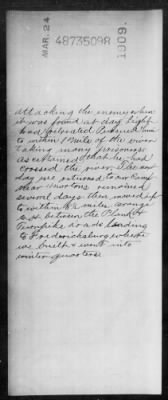 MAR. 24
48735098
1909.
attacking the enemy when
it was found at day light
had retreated. Pursued him
to within 1 mile of the river
taking many prisoners
ascertained that he had
crossed the river. The next
day we returned to our Camp
near Mortons remained
several days then moved up
to within 1/2 mile Orange
C. H. between the Plank &
Turnpike roads leading
to Fredericksburg where
we built & went into
winter quarters